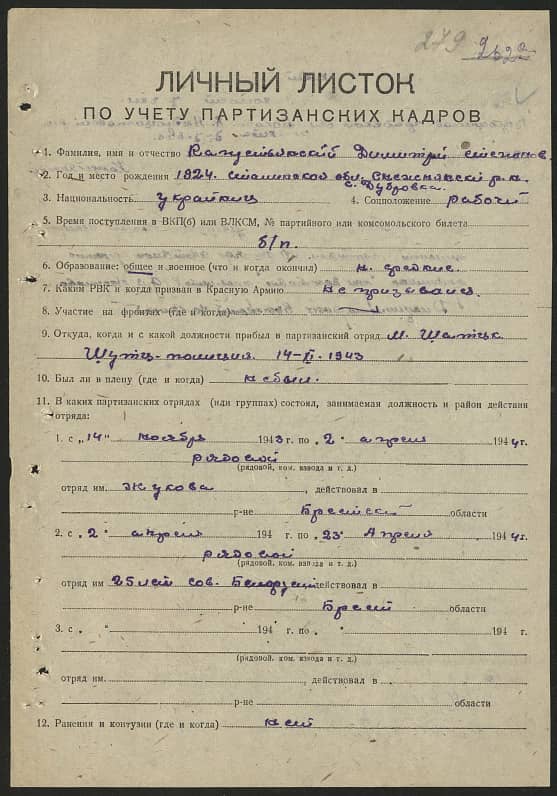 279
ЛИЧНЫЙ ЛИСТОК
ПО УЧЕТУ ПАРТИЗАНСКИХ КАДРОВ
1. Фамилия, имя и отчество Капустянский Димитрий степанов.
2. Год и место рождения 1924. Сталинской обл. Снежнянский р-н.
с. Дубровка.
3. Национальность украинец 4. Соцположение рабочий
5. Время поступления в ВКП(б) или ВЛКСМ, № партийного или комсомольского билета
б/п.
6. Образование: общее и военное (что и когда окончил) н. среднее.
7. Каким РВК и когда призван в Красную Армию не призывался.
8. Участие на фронтах (где и когда)
9. Откуда, когда и с какой должности прибыл в партизанский отряд м. Шатск
Шутц-полиция. 14-XI-1943
10. Был ли в плену (где и когда) не был.
11. В каких партизанских отрядах (или группах) состоял, занимаемая должность и район действия
отряда:
1. с „14" ноября 1943 г. по „2" апреля 1944 г.
рядовой
(рядовой, ком. взвода и т. д.)
отряд им. Жукова, действовал в
р-не Брестской области
2. с „2" апреля 194 г. по „23" Апреля 1944 г.
рядовой
(рядовой, ком. взвода и т. д.)
отряд им 25 лет сов. Белорусси действовал в
р-не Брест области
3. с „ " 194 г. по „ " 194 г.
(рядовой, ком. взвода и т. д.)
отряд им. , действовал в
р-не области
12. Ранения и контузии (где и когда) нет